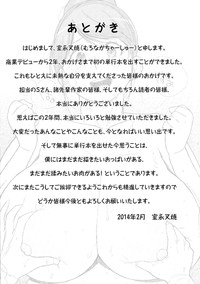 あとがき
はじめまして、室永叉焼(もろながちゃーしゅー)と申します。
商業デビューから2年、おかげさまで初の単行本を出すことができました。
これもひとえに未熟な自分を支えてくださった皆様のおかげです。
担当のSさん、諸先輩作家の皆様、そしてもちろん読者の皆様、
本当にありがとうございました。
思えばこの2年間、本当にいろいろと勉強させていただきました。
大変だったあんなことやこんなことも、今となればいい思い出です。
そして無事に単行本を出せた今思うことは、
僕にはまだまだ描きたいおっぱいがある、
まだまだ揉みたいお肉がある!ということであります。
次にまたこうしてご挨拶できるようこれからも精進していきますので
どうか皆様今後ともよろしくお願いいたします。
2014年2月 室永叉焼